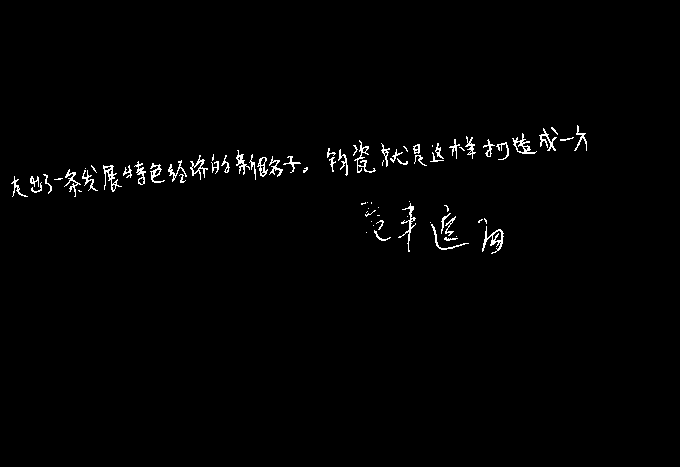 走出了一条发展特色经济的新路子。钧瓷就是这样打造成一方